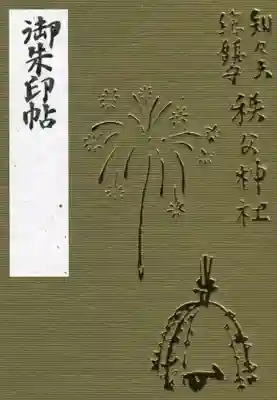 知々夫
総鎮守
秩父神社
御朱印帖